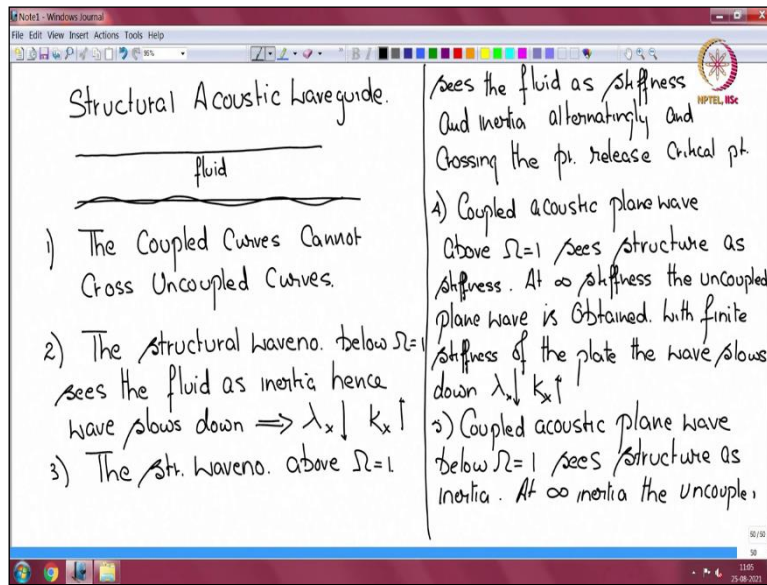 Note1 - Windows Journal
File Edit View Insert Actions Tools Help
95%
B I
NPTEL, IISc
Structural Acoustic Waveguide.
fluid
1) The Coupled Curves Cannot
Cross Uncoupled Curves.
2) The structural waveno. below Ω=1
sees the fluid as inertia hence
wave slows down ⇒ λx↓ kx↑
3) The str. waveno. above Ω=1
sees the fluid as stiffness
and inertia alternatingly and
Crossing the pr. release Critical pt.
4) Coupled acoustic plane wave
above Ω=1 sees structure as
stiffness. At ∞ stiffness the uncoupled
plane wave is Obtained. With finite
stiffness of the plate the wave slows
down λx↓ kx↑
5) Coupled acoustic plane wave
below Ω=1 sees structure as
inertia. At ∞ inertia the uncouple
50/50
50
11:05
25-08-2021